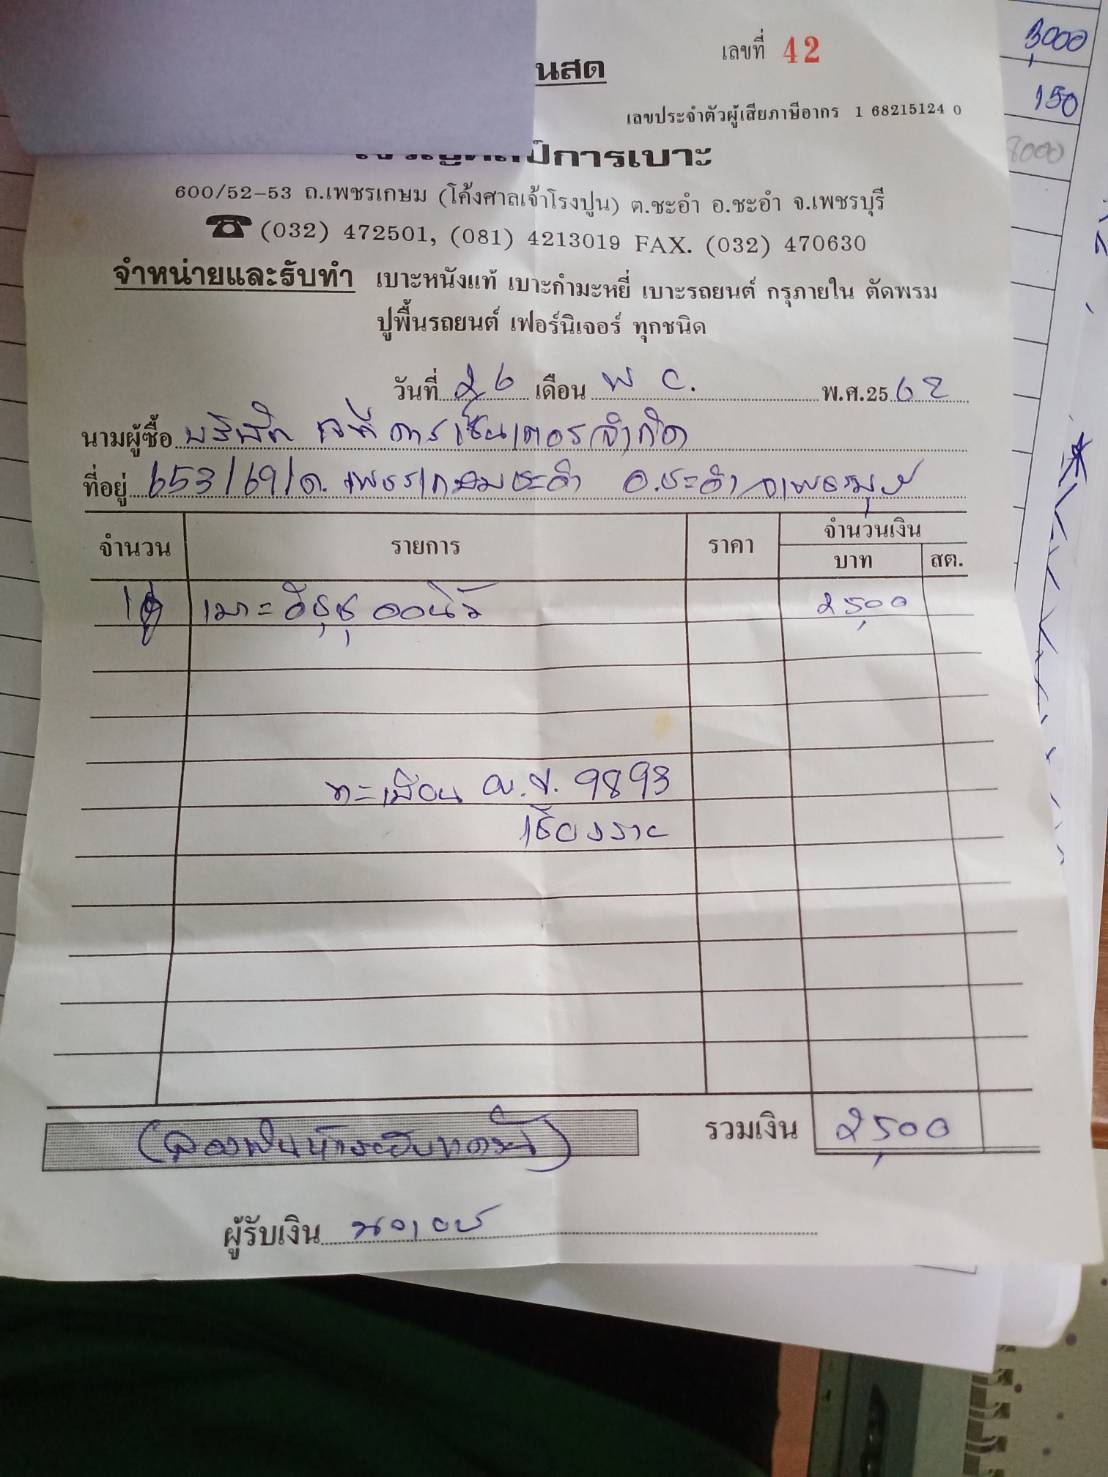 3,000
150
8000
นสด
เลขที่ 42
เลขประจำตัวผู้เสียภาษีอากร 1 68215124 0
การเบาะ
600/52-53 ถ.เพชรเกษม (โค้งศาลเจ้าโรงปูน) ต.ชะอำ อ.ชะอำ จ.เพชรบุรี
(032) 472501, (081) 4213019 FAX. (032) 470630
จำหน่ายและรับทำ เบาะหนังแท้ เบาะกำมะหยี่ เบาะรถยนต์ กรุภายใน ตัดพรม
ปูพื้นรถยนต์ เฟอร์นิเจอร์ ทุกชนิด
วันที่ 26 เดือน พ ค. พ.ศ.25 62
นามผู้ซื้อ บริษัท คาร์เซ็นเตอร์จำกัด
ที่อยู่ 653/69 ถ. เพชรเกษม ชะอำ อ.ชะอำ จ.เพชรบุรี
จำนวน รายการ ราคา จำนวนเงิน
บาท สต.
1 เบาะอีซูซุ 2,500
ทะเบียน 9893
เชียงราย
(สองพันห้าร้อยบาทถ้วน) รวมเงิน 2,500
ผู้รับเงิน